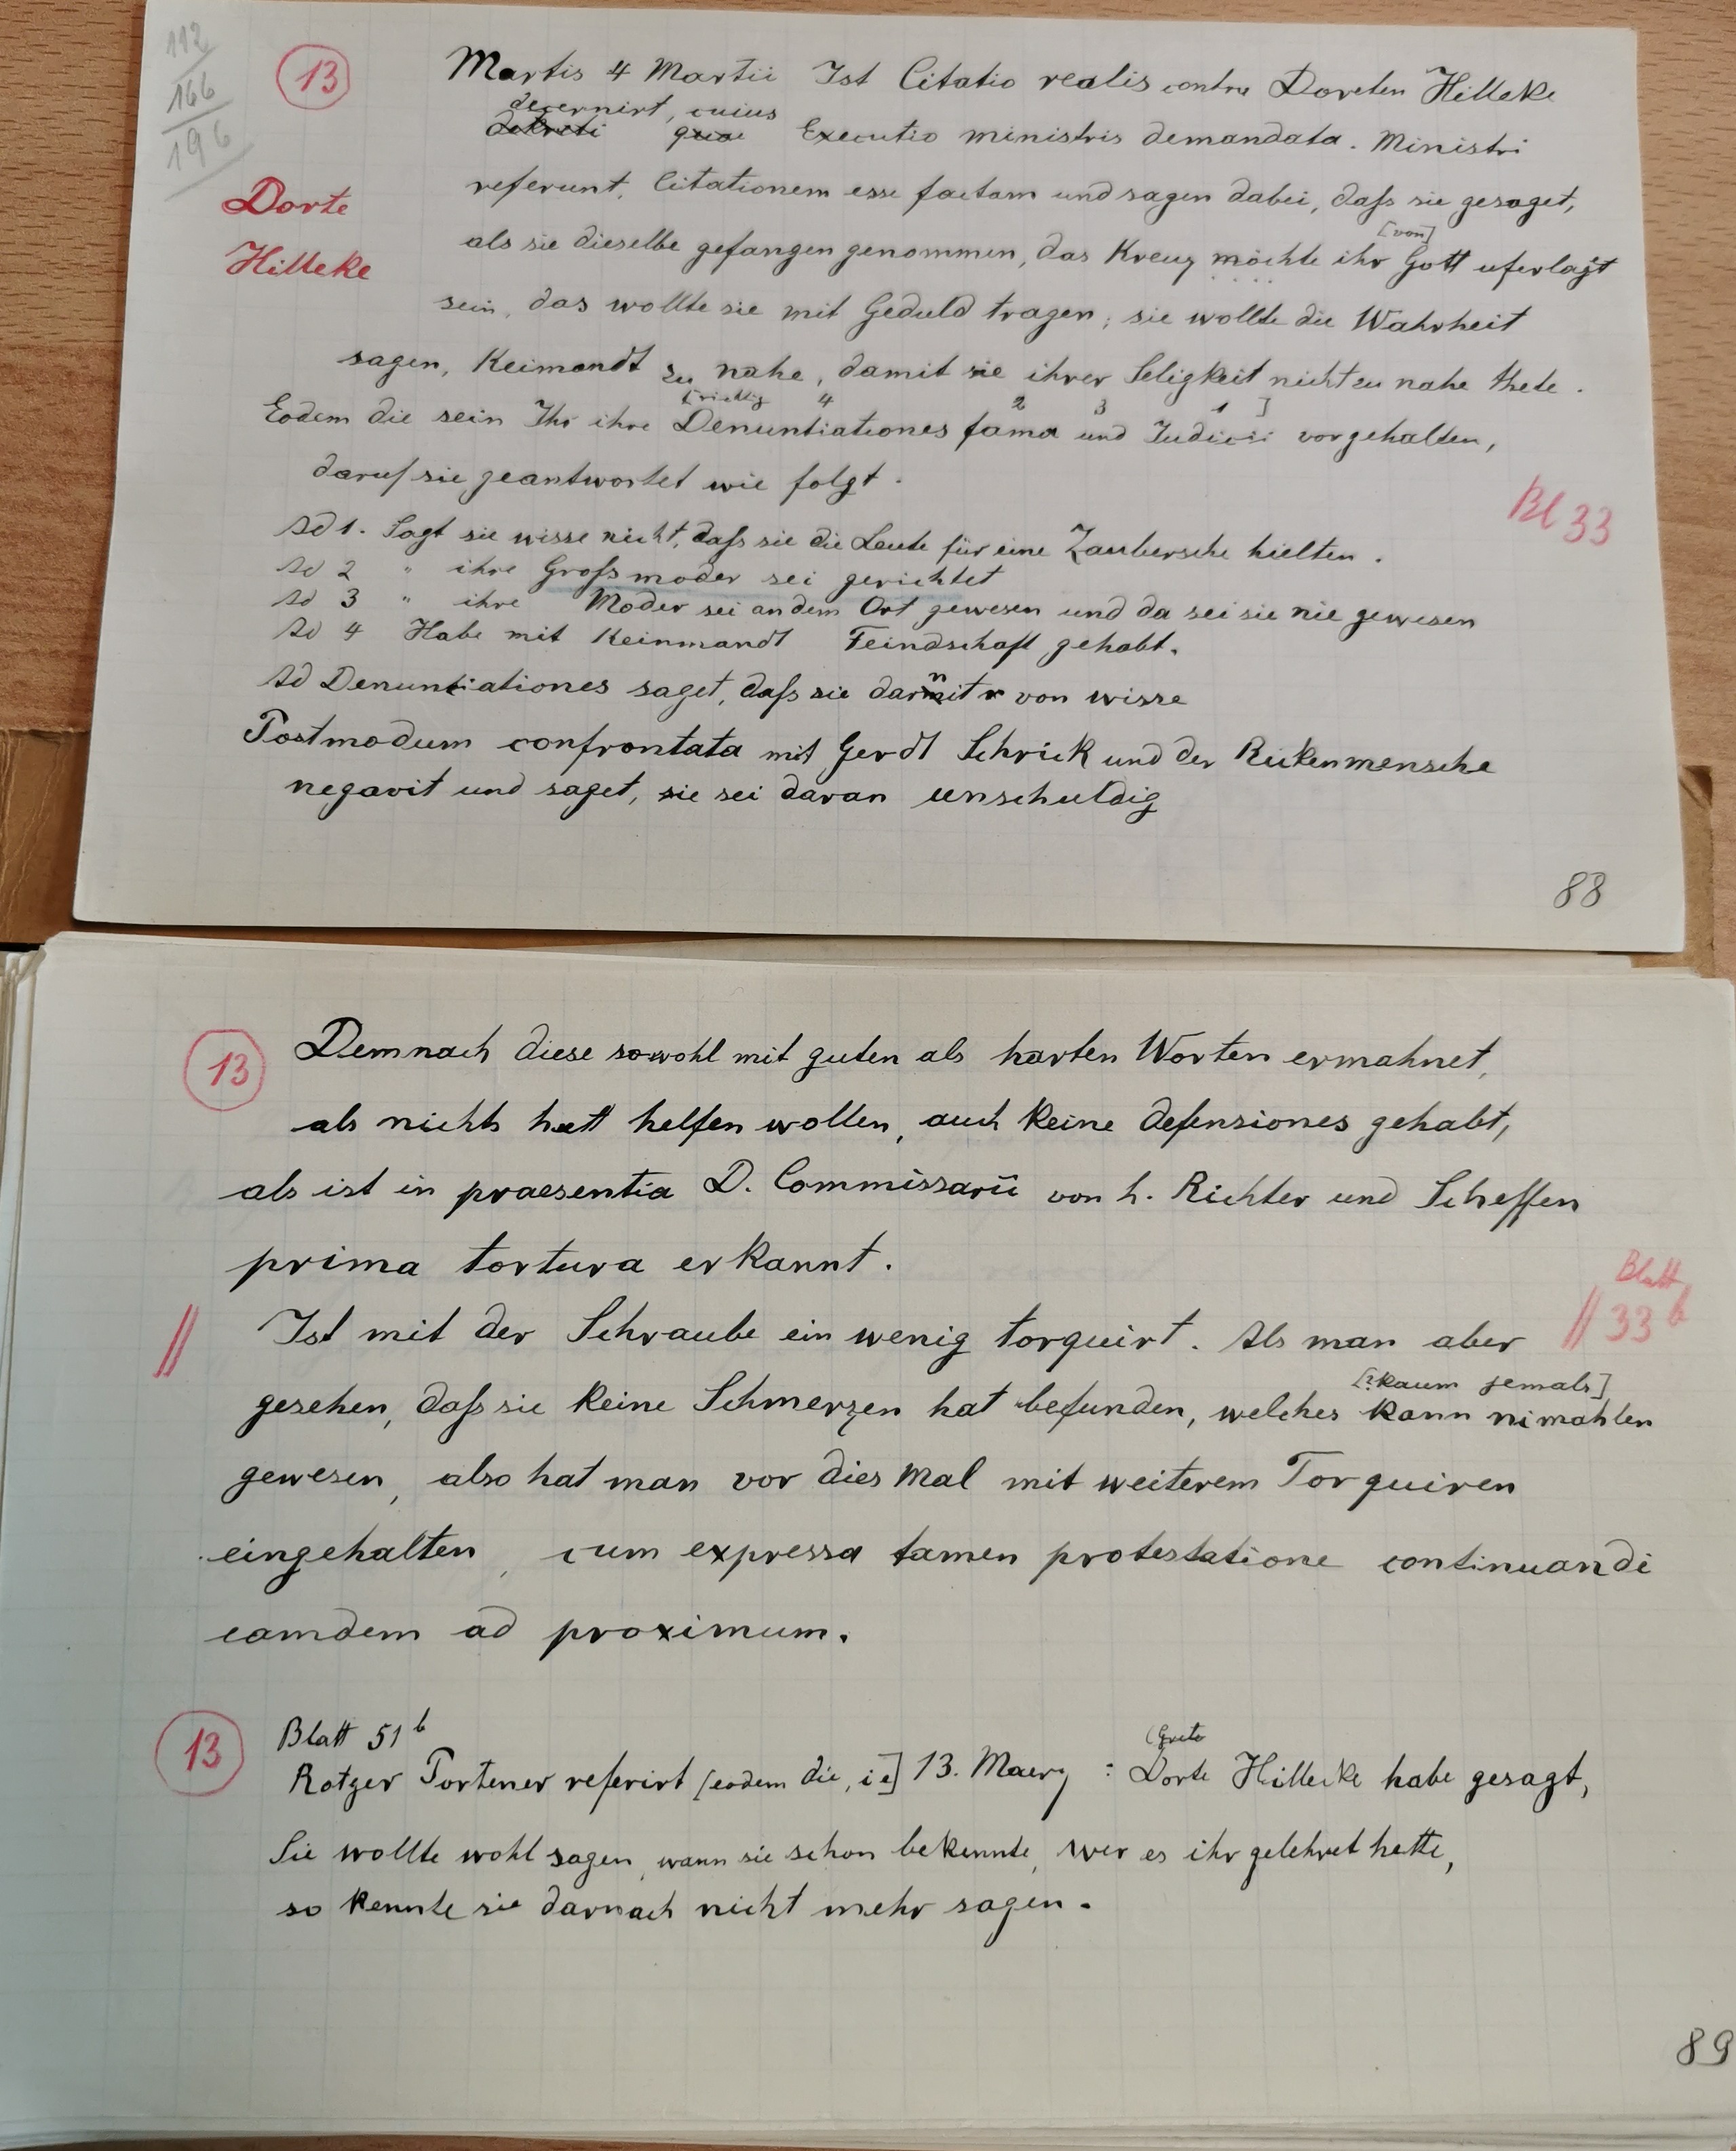 112
166
196
13
Dorte
Hilleke
Martis 4 Martii Ist Citatio realis contra Doreten Hilleke
decernirt, cuius
dekreti quae Executio ministris demandata. Ministri
referunt, Citationem esse factam und sagen dabei, daß sie gesaget,
[von]
als sie dieselbe gefangen genommen, das Kreuz möchte ihr Gott uferlagt
sein, das wollte sie mit Geduld tragen; sie wollte die Wahrheit
sagen, Keimandt zu nahe, damit sie ihrer Seligkeit nicht zu nahe thete.
[richtig 4 2 3 1 ]
Eodem die sein Ihr ihre Denuntiationes fama und Indicii vorgehalten,
daruf sie geantwortet wie folgt.
Bl 33
Ad 1. Sagt sie wisse nicht, daß sie die Leute für eine Zaubersche hielten.
Ad 2 " ihre Großmoder sei gerichtet
Ad 3 " ihre Moder sei an dem Ort gewesen und da sei sie nie gewesen
Ad 4 Habe mit Keinmandt Feindschaft gehabt.
Ad Denuntiationes saget, daß sie darnit von wisse
Postmodum confrontata mit Gerdt Schrick und der Rickenmensche
negavit und saget, sie sei daran unschuldig
88
13
Demnach diese sowohl mit guten als harten Worten ermahnet,
als nichts hatt helfen wollen, auch keine defensiones gehabt,
als ist in praesentia D. Commissarii von h. Richter und Scheffen
prima tortura erkannt.
Blatt
// 33 b
// Ist mit der Schraube ein wenig torquirt. Als man aber
[? kaum jemals]
gesehen, daß sie keine Schmerzen hat befunden, welches kann nimahlen
gewesen, also hat man vor dies Mal mit weiterem Torquiren
eingehalten, cum expressa tamen protestatione continuandi
eamdem ad proximum.
13
Blatt 51 b
(Grete
Rotger Portener referirt [eodem die, i e] 13. Maerz : Dorte Hillecke habe gesagt,
Sie wollte wohl sagen, wann sie schon bekennte, wer es ihr gelehret hette,
so kennte sie darnach nicht mehr sagen.
89